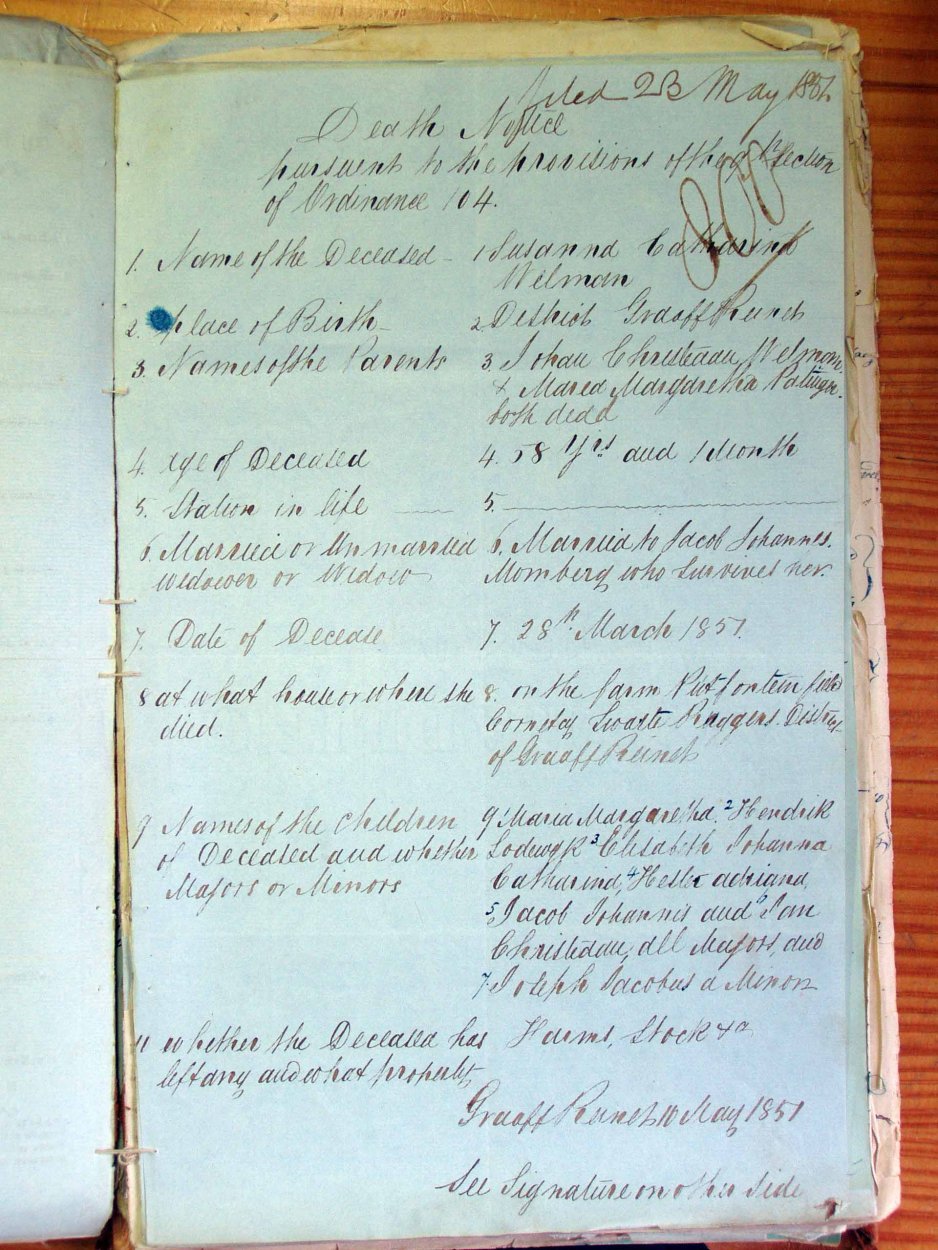 filed 23 May 1851
Death Notice
pursuant to the provisions of the 9th Section
of Ordinance 104.
1. Name of the Deceased - 1 Susanna Catharina
Welman
2. place of Birth - 2 District Graaff Reinet
3. Names of the Parents 3. Johan Christiaan Welman
& Maria Margaretha
both dead
4. Age of Deceased 4. 58 Yrs and 1 Month
5. Station in life 5.
6. Married or Unmarried 6. Married to Jacob Johannes.
widower or Widow Momberg who survives her.
7. Date of Decease 7. 28th March 1851.
8 at what house or where she 8. on the farm Putfontein field
died. Cornetcy Swarte Ruggens District
of Graaff Reinet
9 Names of the children 9 1 Maria Margaretha, 2 Hendrik
of Deceased and whether Lodewyk 3 Elisabeth Johanna
Majors or Minors Catharina, 4 Hester adriana,
5. Jacob Johannis and 6 Jan
Christiaan, all Majors, and
7. Joseph Jacobus a Minor
11 whether the Deceased has Farms, Stock &a
left any and what property
Graaff Reinet 10 May 1851
See Signature on other Side